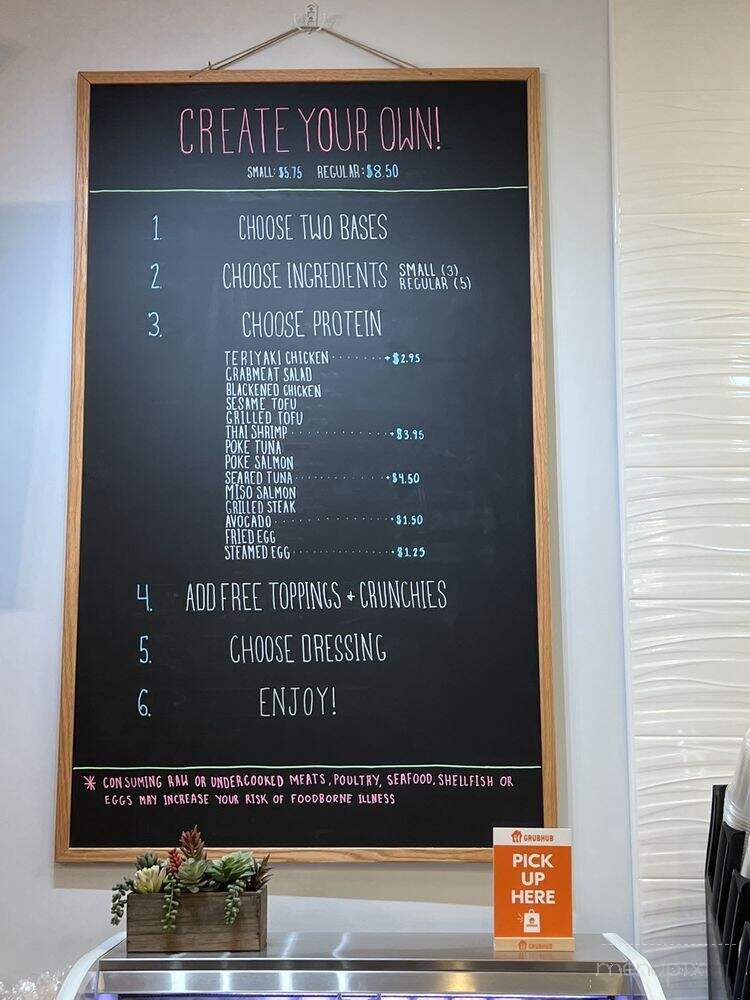 CREATE YOUR OWN!
SMALL: $5.75 REGULAR: $8.50
1. CHOOSE TWO BASES
2. CHOOSE INGREDIENTS SMALL (3)
REGULAR (5)
3. CHOOSE PROTEIN
TERIYAKI CHICKEN ······· +$2.95
CRABMEAT SALAD
BLACKENED CHICKEN
SESAME TOFU
GRILLED TOFU
THAI SHRIMP ·············· +$3.95
POKE TUNA
POKE SALMON
SEARED TUNA ············ +$4.50
MISO SALMON
GRILLED STEAK
AVOCADO ················ +$1.50
FRIED EGG
STEAMED EGG ············· +$1.25
4. ADD FREE TOPPINGS + CRUNCHIES
5. CHOOSE DRESSING
6. ENJOY!
* CONSUMING RAW OR UNDERCOOKED MEATS, POULTRY, SEAFOOD, SHELLFISH OR
EGGS MAY INCREASE YOUR RISK OF FOODBORNE ILLNESS
GRUBHUB
PICK
UP
HERE
GRUBHUB
menupix